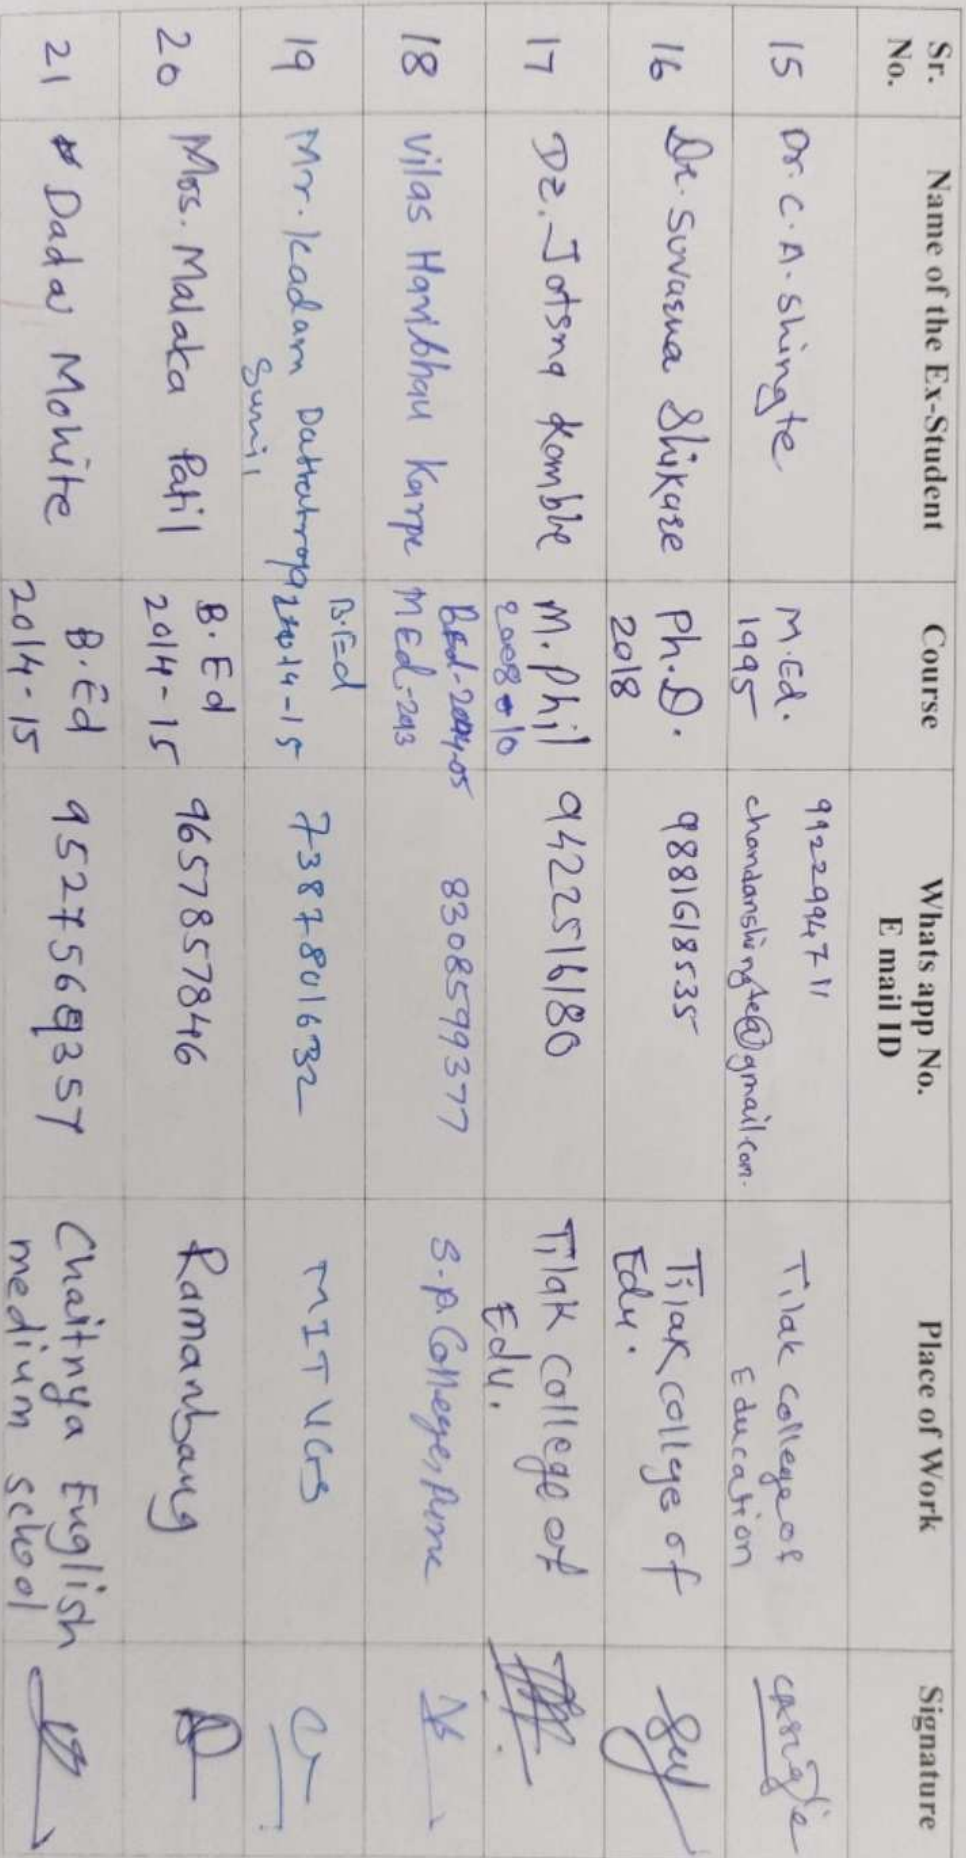 Sr. No. Name of the Ex-Student Course Whats app No. E mail ID Place of Work Signature
15 Dr. C. A. Shingte M.Ed. 1995 9922994711 chandanshingte@gmail.com. Tilak College of Education
16 Dr. Suvarna Shikare Ph.D. 2018 9881618535 Tilak college of Edu.
17 Dr. Jotsna Kamble M.Phil 2008-10 9422516180 Tilak College of Edu.
18 Vilas Haribhau Karpe B.Ed-2004-05 MEd-2013 8308599377 S.P. College, Pune
19 Mr. Kadam Dattatraya Sunil B.Ed 2014-15 7387801632 MIT VGS
20 Mrs. Malaka Patil B.Ed 2014-15 9657857846 Ramanbaug
21 Dada Mohite B.Ed 2014-15 9527569357 Chaitnya English medium school